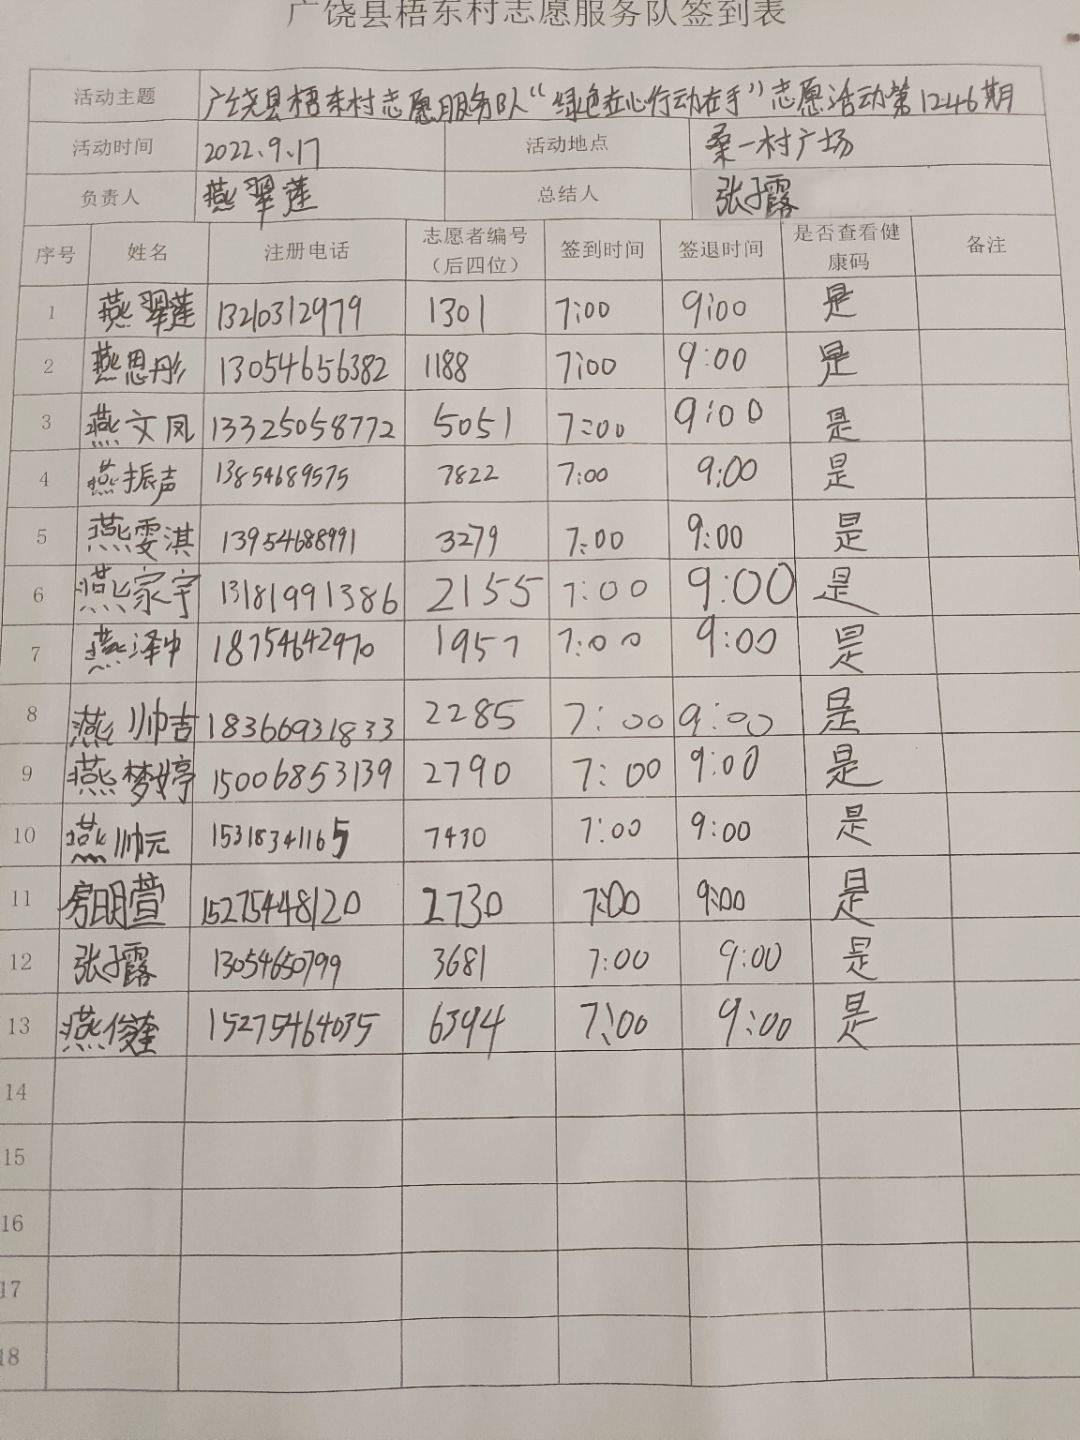 广饶县梧东村志愿服务队签到表
活动主题 广饶县梧东村志愿服务队“绿色在心行动在手”志愿活动第1246期
活动时间 2022.9.17 活动地点 桑一村广场
负责人 燕翠莲 总结人 张子露
序号 姓名 注册电话 志愿者编号（后四位） 签到时间 签退时间 是否查看健康码 备注
1 燕翠莲 13210312979 1301 7:00 9:00 是
2 燕思彤 13054656382 1188 7:00 9:00 是
3 燕文凤 13325058772 5051 7:00 9:00 是
4 燕振声 13854689575 7822 7:00 9:00 是
5 燕雯淇 13954688991 3279 7:00 9:00 是
6 燕家宇 13181991386 2155 7:00 9:00 是
7 燕泽中 18754642970 1957 7:00 9:00 是
8 燕帅吉 18366931833 2285 7:00 9:00 是
9 燕梦婷 15006853139 2790 7:00 9:00 是
10 燕帅元 15318341165 7430 7:00 9:00 是
11 房明萱 15275448120 2730 7:00 9:00 是
12 张子露 13054650799 3681 7:00 9:00 是
13 燕俊 15275464035 6394 7:00 9:00 是
14
15
16
17
18